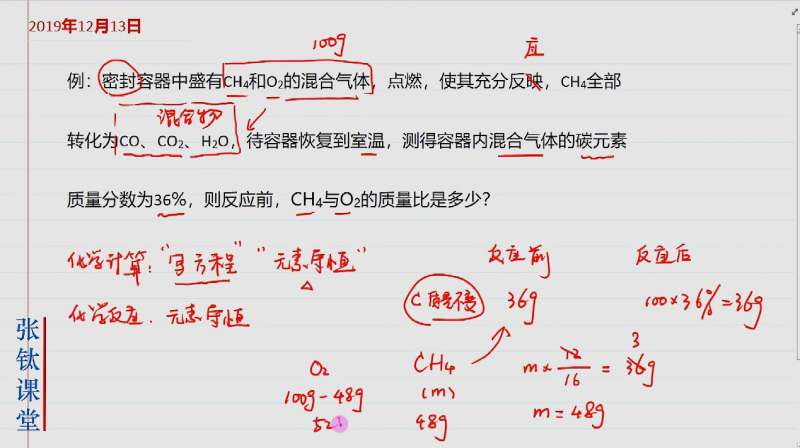 2019年12月13日
100g
应
例：密封容器中盛有CH₄和O₂的混合气体，点燃，使其充分反映，CH₄全部
混合物
转化为CO、CO₂、H₂O，待容器恢复到室温，测得容器内混合气体的碳元素
质量分数为36%，则反应前，CH₄与O₂的质量比是多少?
化学计算："写方程" "元素守恒"
反应前 反应后
化学反应．元素守恒
C质量不变 36g 100×36%=36g
张钛课堂
O₂ CH₄ m×12/16 = 36g 3
100g-48g (m)
52 48g m=48g